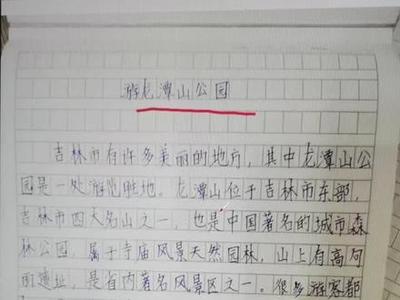 游龙潭山公园
吉林市有许多美丽的地方，其中龙潭山公
园是一处游览胜地。龙潭山位于吉林市东部，
吉林市四大名山之一，也是中国著名的城市森
林公园，属于寺庙风景天然园林，山上有高句
丽遗址，是省内著名风景区之一。很多游客都